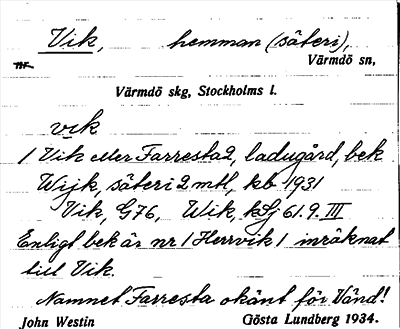 Vik, hemman (säteri),
Värmdö sn,
Värmdö skg, Stockholms l.
vik
1 Vik eller Farresta 2, ladugård, bek
Wijk, säteri 2 mtl, kb 1931
Vik, G76, Wik, 61.9.III
Enligt bek är nr 1 Herrvik 1 inräknat
till Vik.
Namnet Farresta okänt för Vänd!
John Westin Gösta Lundberg 1934.